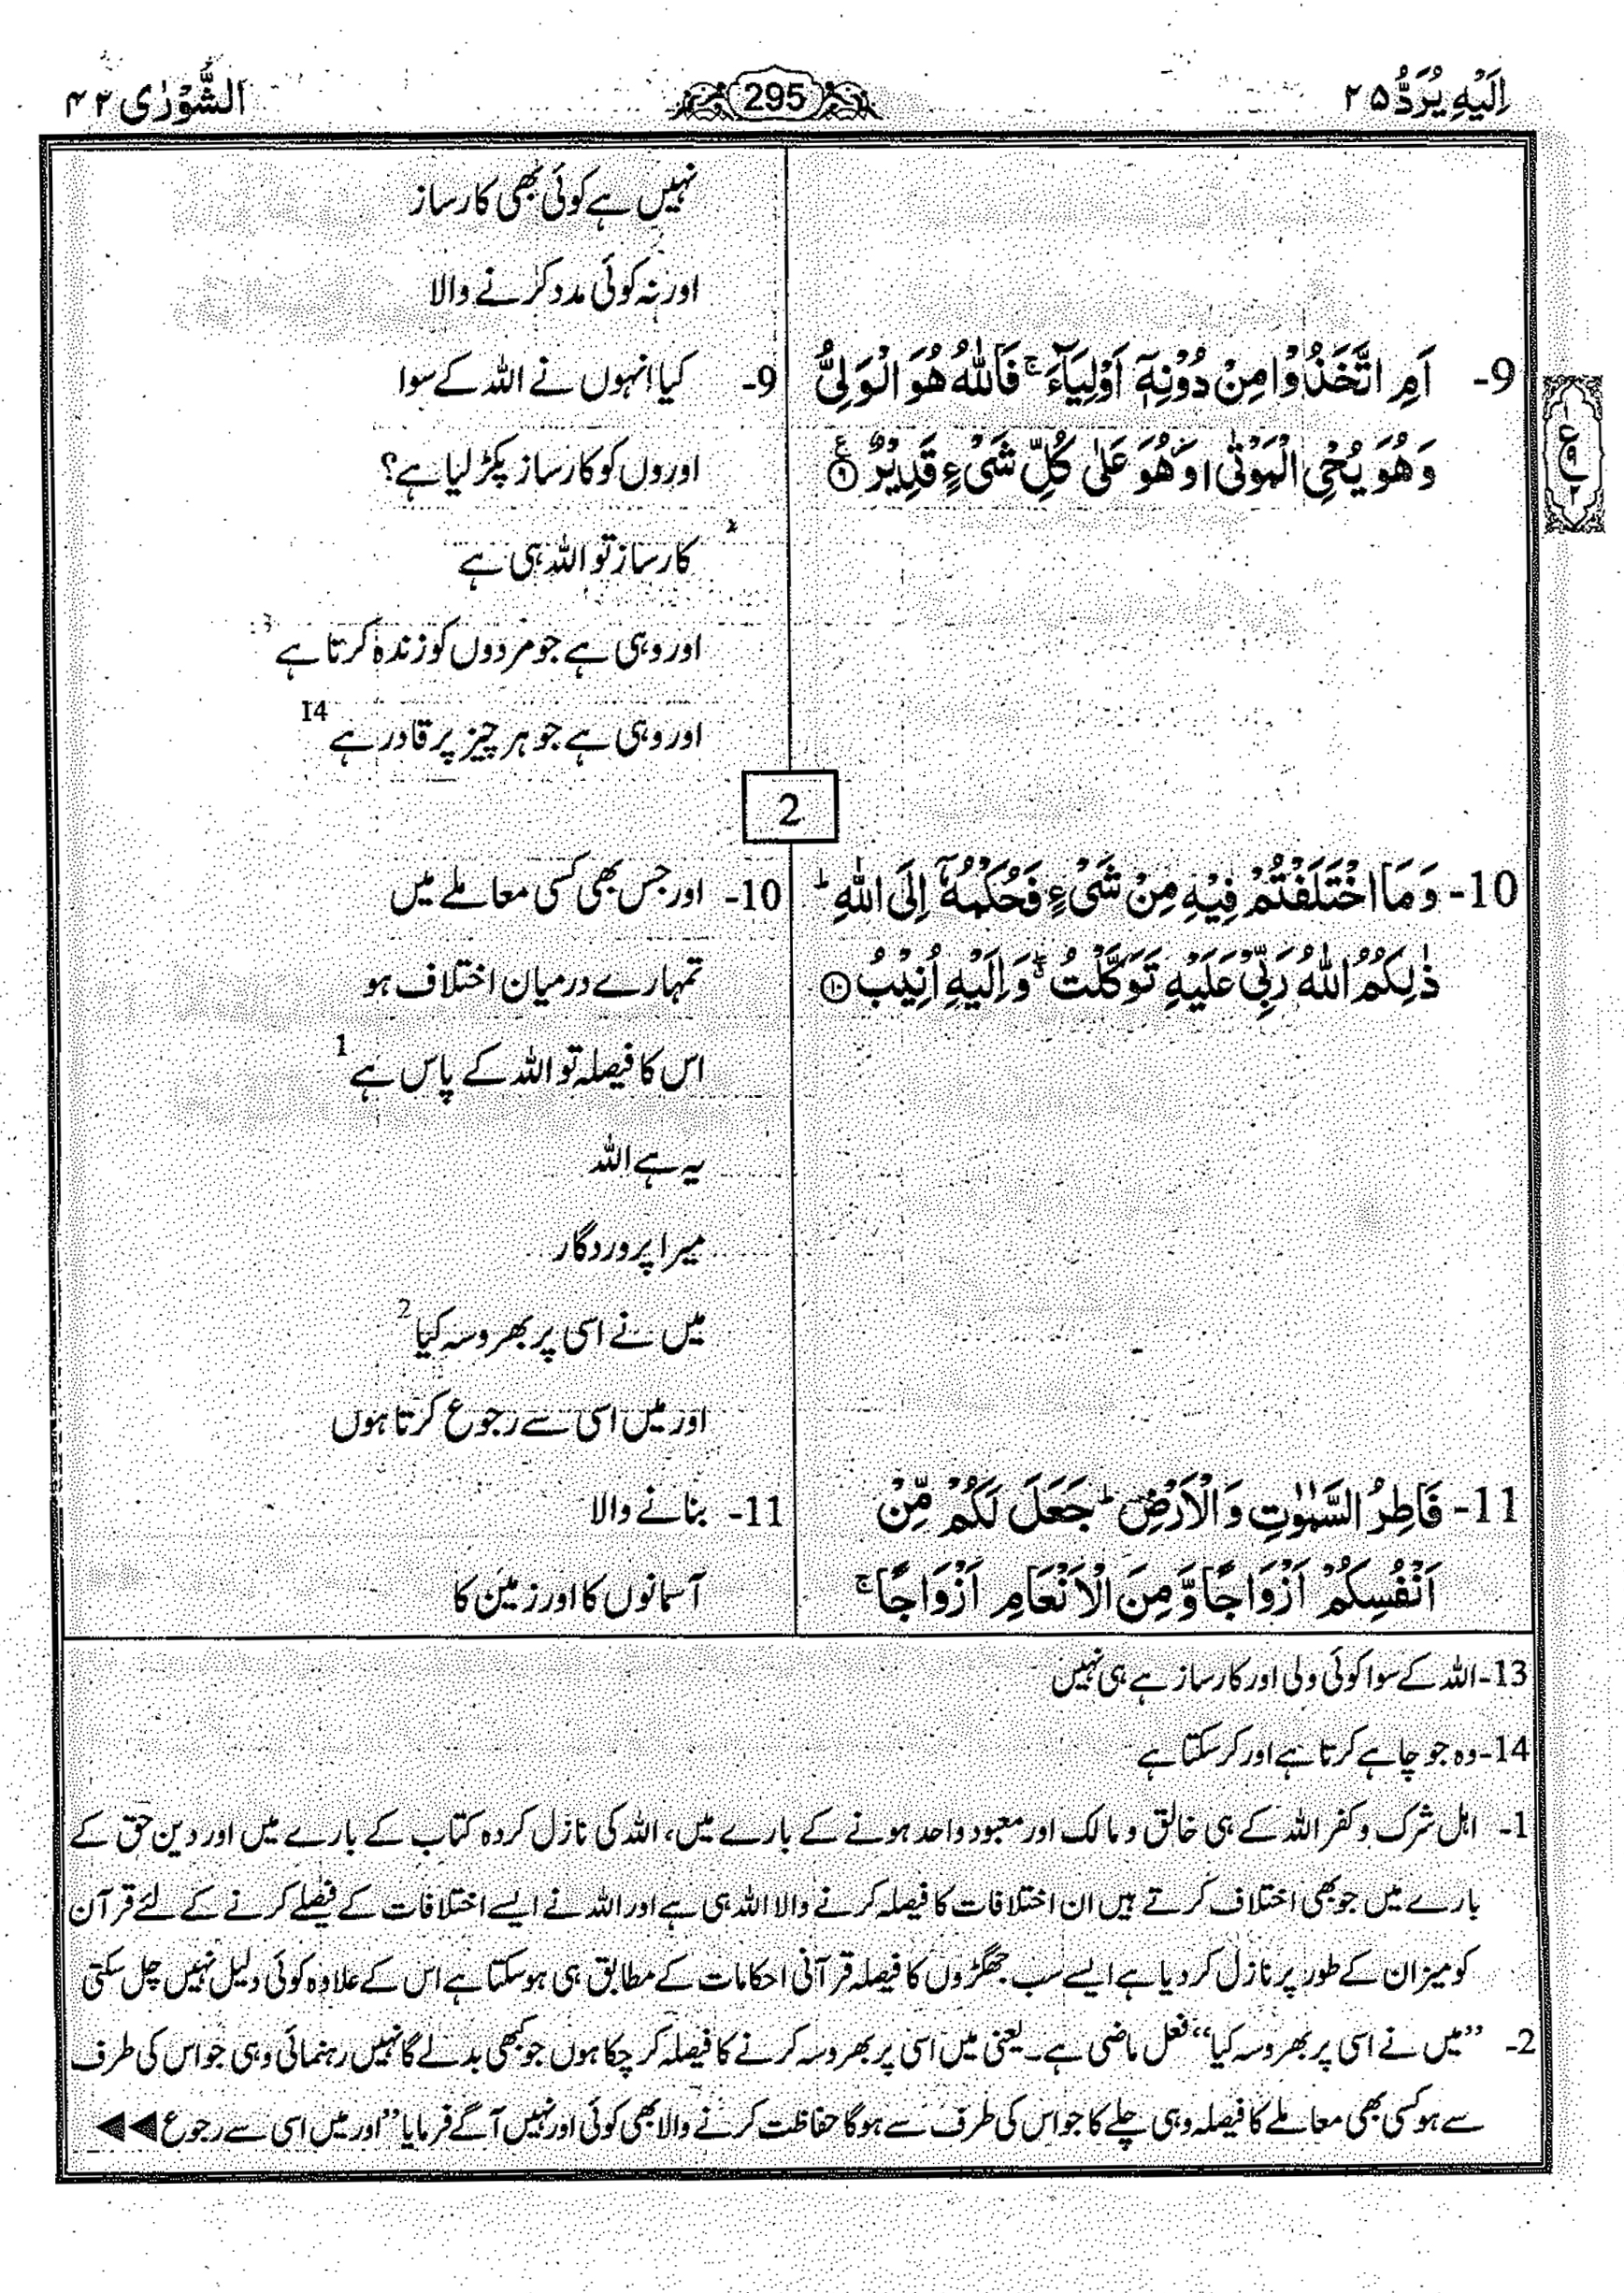 اِلَيْهِ يُرَدُّ ۲۵
295
اَلشُّوْرٰى ۴۲
نہیں ہے کوئی بھی کارساز
اور نہ کوئی مدد کرنے والا
9- اَمِ اتَّخَذُوْا مِنْ دُوْنِهٖٓ اَوْلِيَآءَ ۚ فَاللّٰهُ هُوَ الْوَلِيُّ
وَهُوَ يُحْيِ الْمَوْتٰى ۫ وَهُوَ عَلٰى كُلِّ شَيْءٍ قَدِيْرٌ ۟ ۹
ع
9- کیا انہوں نے اللہ کے سوا
اوروں کو کارساز پکڑ لیا ہے؟
کارساز تو اللہ ہی ہے
اور وہی ہے جو مردوں کو زندہ کرتا ہے
اور وہی ہے جو ہر چیز پر قادر ہے 14
2
10- وَمَا اخْتَلَفْتُمْ فِيْهِ مِنْ شَيْءٍ فَحُكْمُهٗٓ اِلَى اللّٰهِ ؕ
ذٰلِكُمُ اللّٰهُ رَبِّيْ عَلَيْهِ تَوَكَّلْتُ ۖ وَاِلَيْهِ اُنِيْبُ ۱۰
10- اور جس بھی کسی معاملے میں
تمہارے درمیان اختلاف ہو
اس کا فیصلہ تو اللہ کے پاس ہے 1
یہ ہے اللہ
میرا پروردگار
میں نے اسی پر بھروسہ کیا 2
اور میں اسی سے رجوع کرتا ہوں
11- فَاطِرُ السَّمٰوٰتِ وَالْاَرْضِ ؕ جَعَلَ لَكُمْ مِّنْ
اَنْفُسِكُمْ اَزْوَاجًا وَّمِنَ الْاَنْعَامِ اَزْوَاجًا ۚ
11- بنانے والا
آسمانوں کا اور زمین کا
13- اللہ کے سوا کوئی ولی اور کارساز ہے ہی نہیں
14- وہ جو چاہے کرتا ہے اور کر سکتا ہے
1- اہل شرک و کفر اللہ کے ہی خالق و مالک اور معبود واحد ہونے کے بارے میں، اللہ کی نازل کردہ کتاب کے بارے میں اور دین حق کے
بارے میں جو بھی اختلاف کرتے ہیں ان اختلافات کا فیصلہ کرنے والا اللہ ہی ہے اور اللہ نے ایسے اختلافات کے فیصلے کرنے کے لئے قرآن
کو میزان کے طور پر نازل کر دیا ہے ایسے سب جھگڑوں کا فیصلہ قرآنی احکامات کے مطابق ہی ہو سکتا ہے اس کے علاوہ کوئی دلیل نہیں چل سکتی
2- ”میں نے اسی پر بھروسہ کیا“ فعل ماضی ہے۔ یعنی میں اسی پر بھروسہ کرنے کا فیصلہ کر چکا ہوں جو کبھی بدلے گا نہیں رہنمائی وہی جو اس کی طرف
سے ہو کسی بھی معاملے کا فیصلہ وہی چلے گا جو اس کی طرف سے ہوگا حفاظت کرنے والا بھی کوئی اور نہیں آگے فرمایا ”اور میں اسی سے رجوع ◀◀